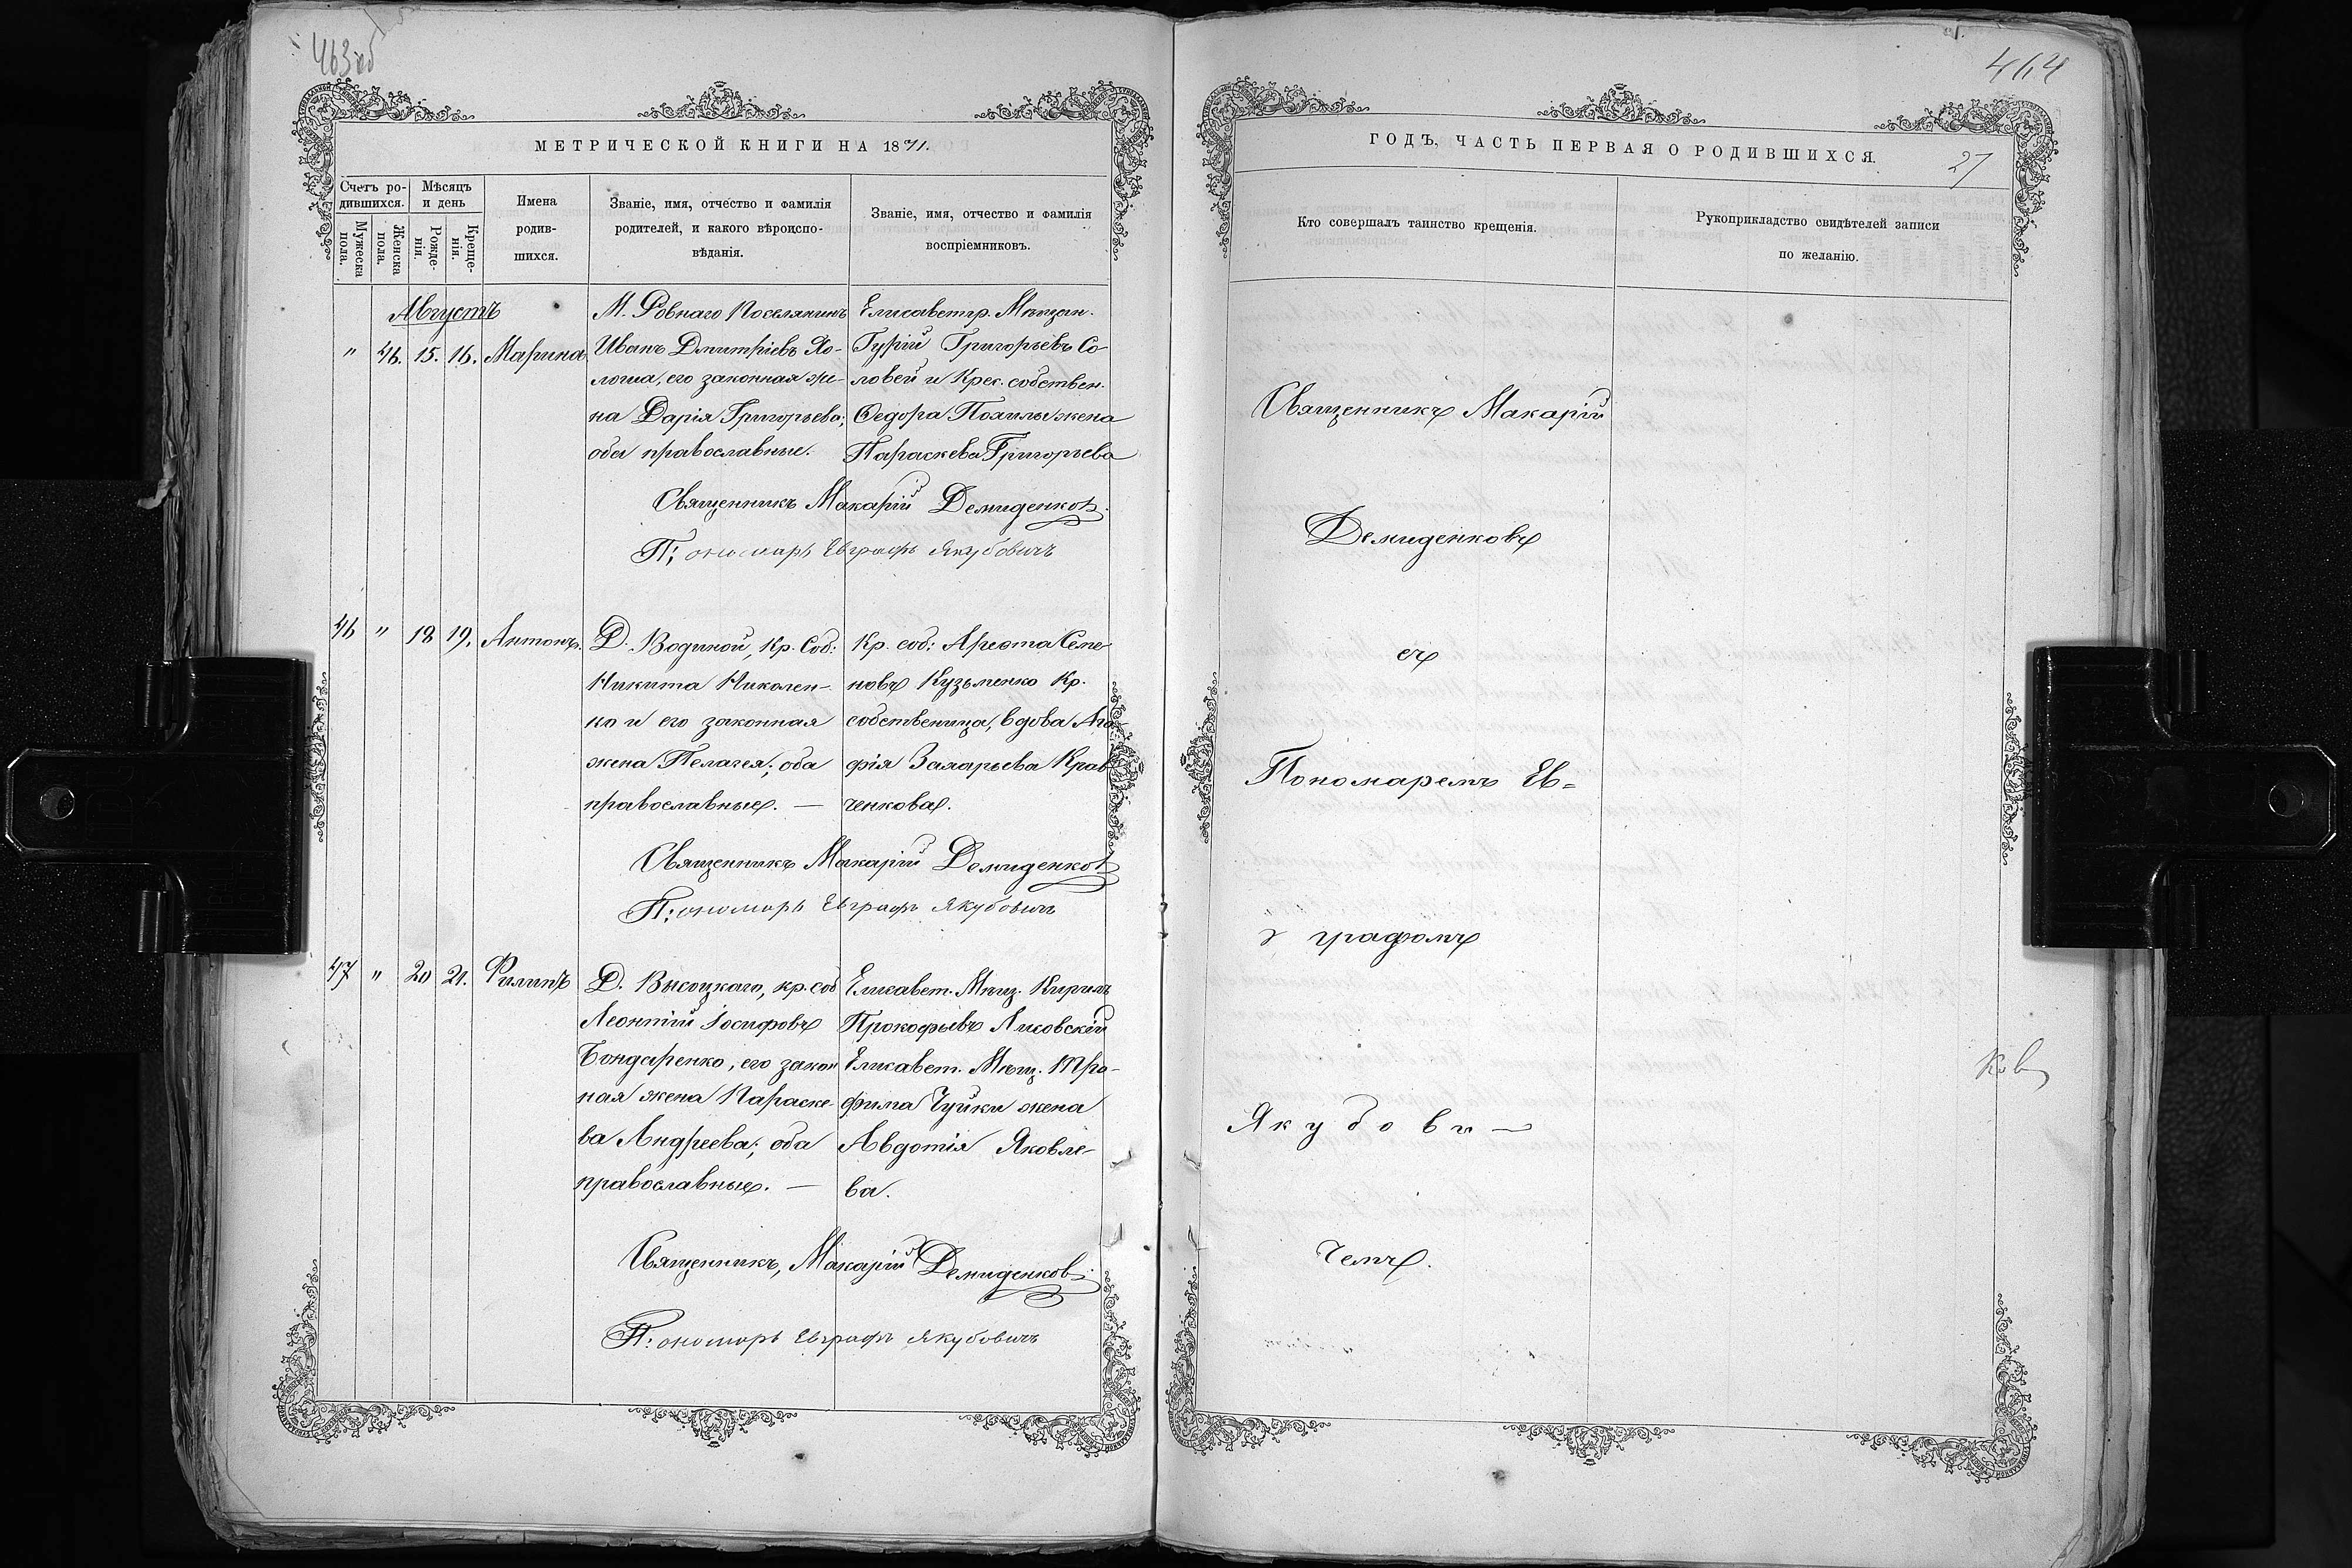 463 об
МЕТРИЧЕСКОЙ КНИГИ НА 1871.
Счетъ ро-
дившихся.
Мужеска
пола.
Женска
пола.
Мѣсяцъ
и день
Рожде-
нія.
Креще-
нія.
Имена
родив-
шихся.
Званіе, имя, отчество и фамилія
родителей, и какого вѣроиспо-
вѣданія.
Званіе, имя, отчество и фамилія
воспріемниковъ.
Августъ
" 46. 15. 16. Марина
М. Ровнаго Поселянинъ
Иванъ Дмитріевъ Хо-
лоша, его законная же-
на Дарія Григорьева;
оба православные.
Елисаветгр. Мѣщан.
Гурій Григорьевъ Со-
ловей и Крес. собствен.
Ѳедора жена
Параскева Григорьева
Священникъ Макарій Демиденковъ.
П: ономарь Евграфъ Якубовичъ
46 " 18 19. Антонъ.
Д. Водяной, Кр. Соб:
Никита Николен-
ко и его законная
жена Пелагея; оба
православные. —
Кр. соб: Ареѳта Семе-
новъ Кузьменко Кр.
собственица, вдова Ага-
фія Захарьева Крав
ченкова.
Священникъ Макарій Демиденковъ
П: ономарь Евграфъ Якубовичъ
47 " 20 21. Филипъ
Д. Высоцкаго, кр. соб
Леонтій Іосифовъ
Бондаренко, его закон
ная жена Параске-
ва Андреева; оба
православные. —
Елисавет. Мѣщ. Кирилъ
Прокофьевъ Лисовскій
Елисавет. Мѣщ. Тро-
фима Чуйки жена
Авдотія Яковле-
ва.
Священникъ, Макарій Демиденковъ.
П: ономарь Евграфъ Якубовичъ
464
ГОДЪ, ЧАСТЬ ПЕРВАЯ О РОДИВШИХСЯ.
27
Кто совершалъ таинство крещенія.
Рукоприкладство свидѣтелей записи
по желанію.
Священникъ Макарій
Демиденковъ
съ
Пономаремъ Ев=
графомъ
Якубови—
чемъ.
ковъ